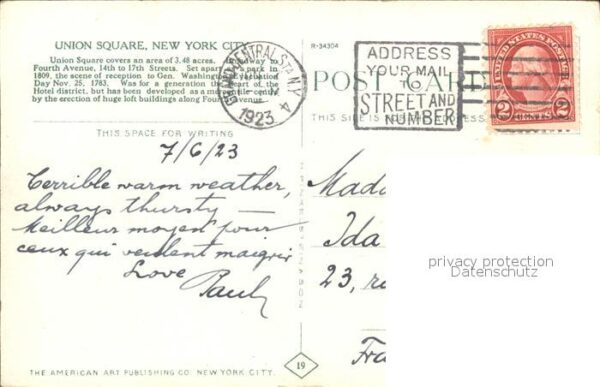 UNION SQUARE, NEW YORK CITY
Union Square covers an area of 3.48 acres. Broadway to
Fourth Avenue, 14th to 17th Streets. Set apart as a park in
1809, the scene of reception to Gen. Washington Evacuation
Day Nov. 25, 1783. Was for a generation the heart of the
Hotel district, but has been developed as a mercantile centre
by the erection of huge loft buildings along Fourth Avenue.
GRAND CENTRAL STA. N.Y.
4
1923
R-34304
POST CARD
ADDRESS
YOUR MAIL
TO
STREET AND
NUMBER
UNITED STATES POSTAGE
2 CENTS 2
THIS SPACE FOR WRITING
THIS SIDE IS FOR THE ADDRESS
7/6/23
Terrible warm weather,
always thursty —
Meilleur moyen pour
ceux qui veulent maigrir
Love
Paul
Mada
Ida
23, ru
Fra
privacy protection
Datenschutz
19
THE AMERICAN ART PUBLISHING CO. NEW YORK CITY.